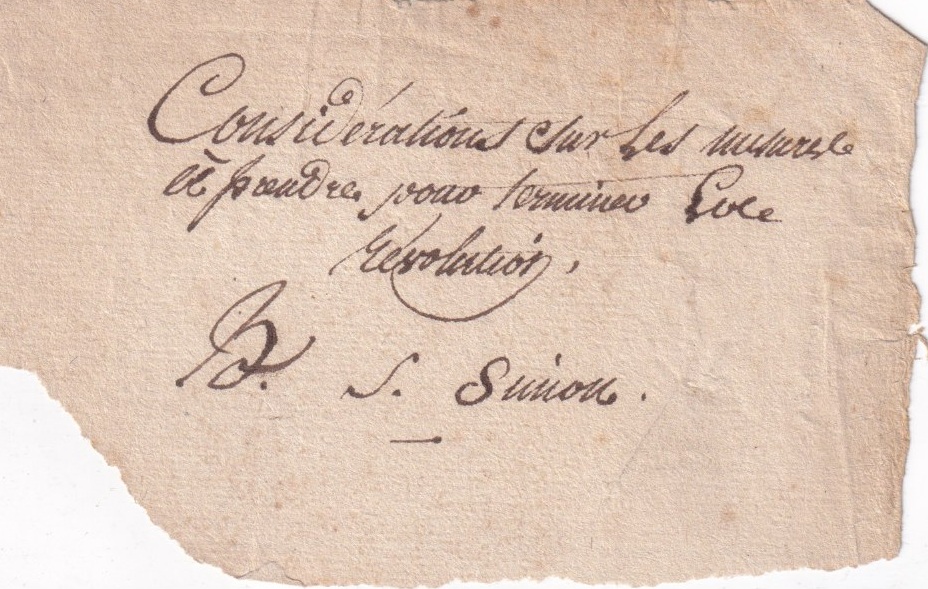 Considérations sur les mesures
à prendre pour terminer La
révolution,
S. Simon.